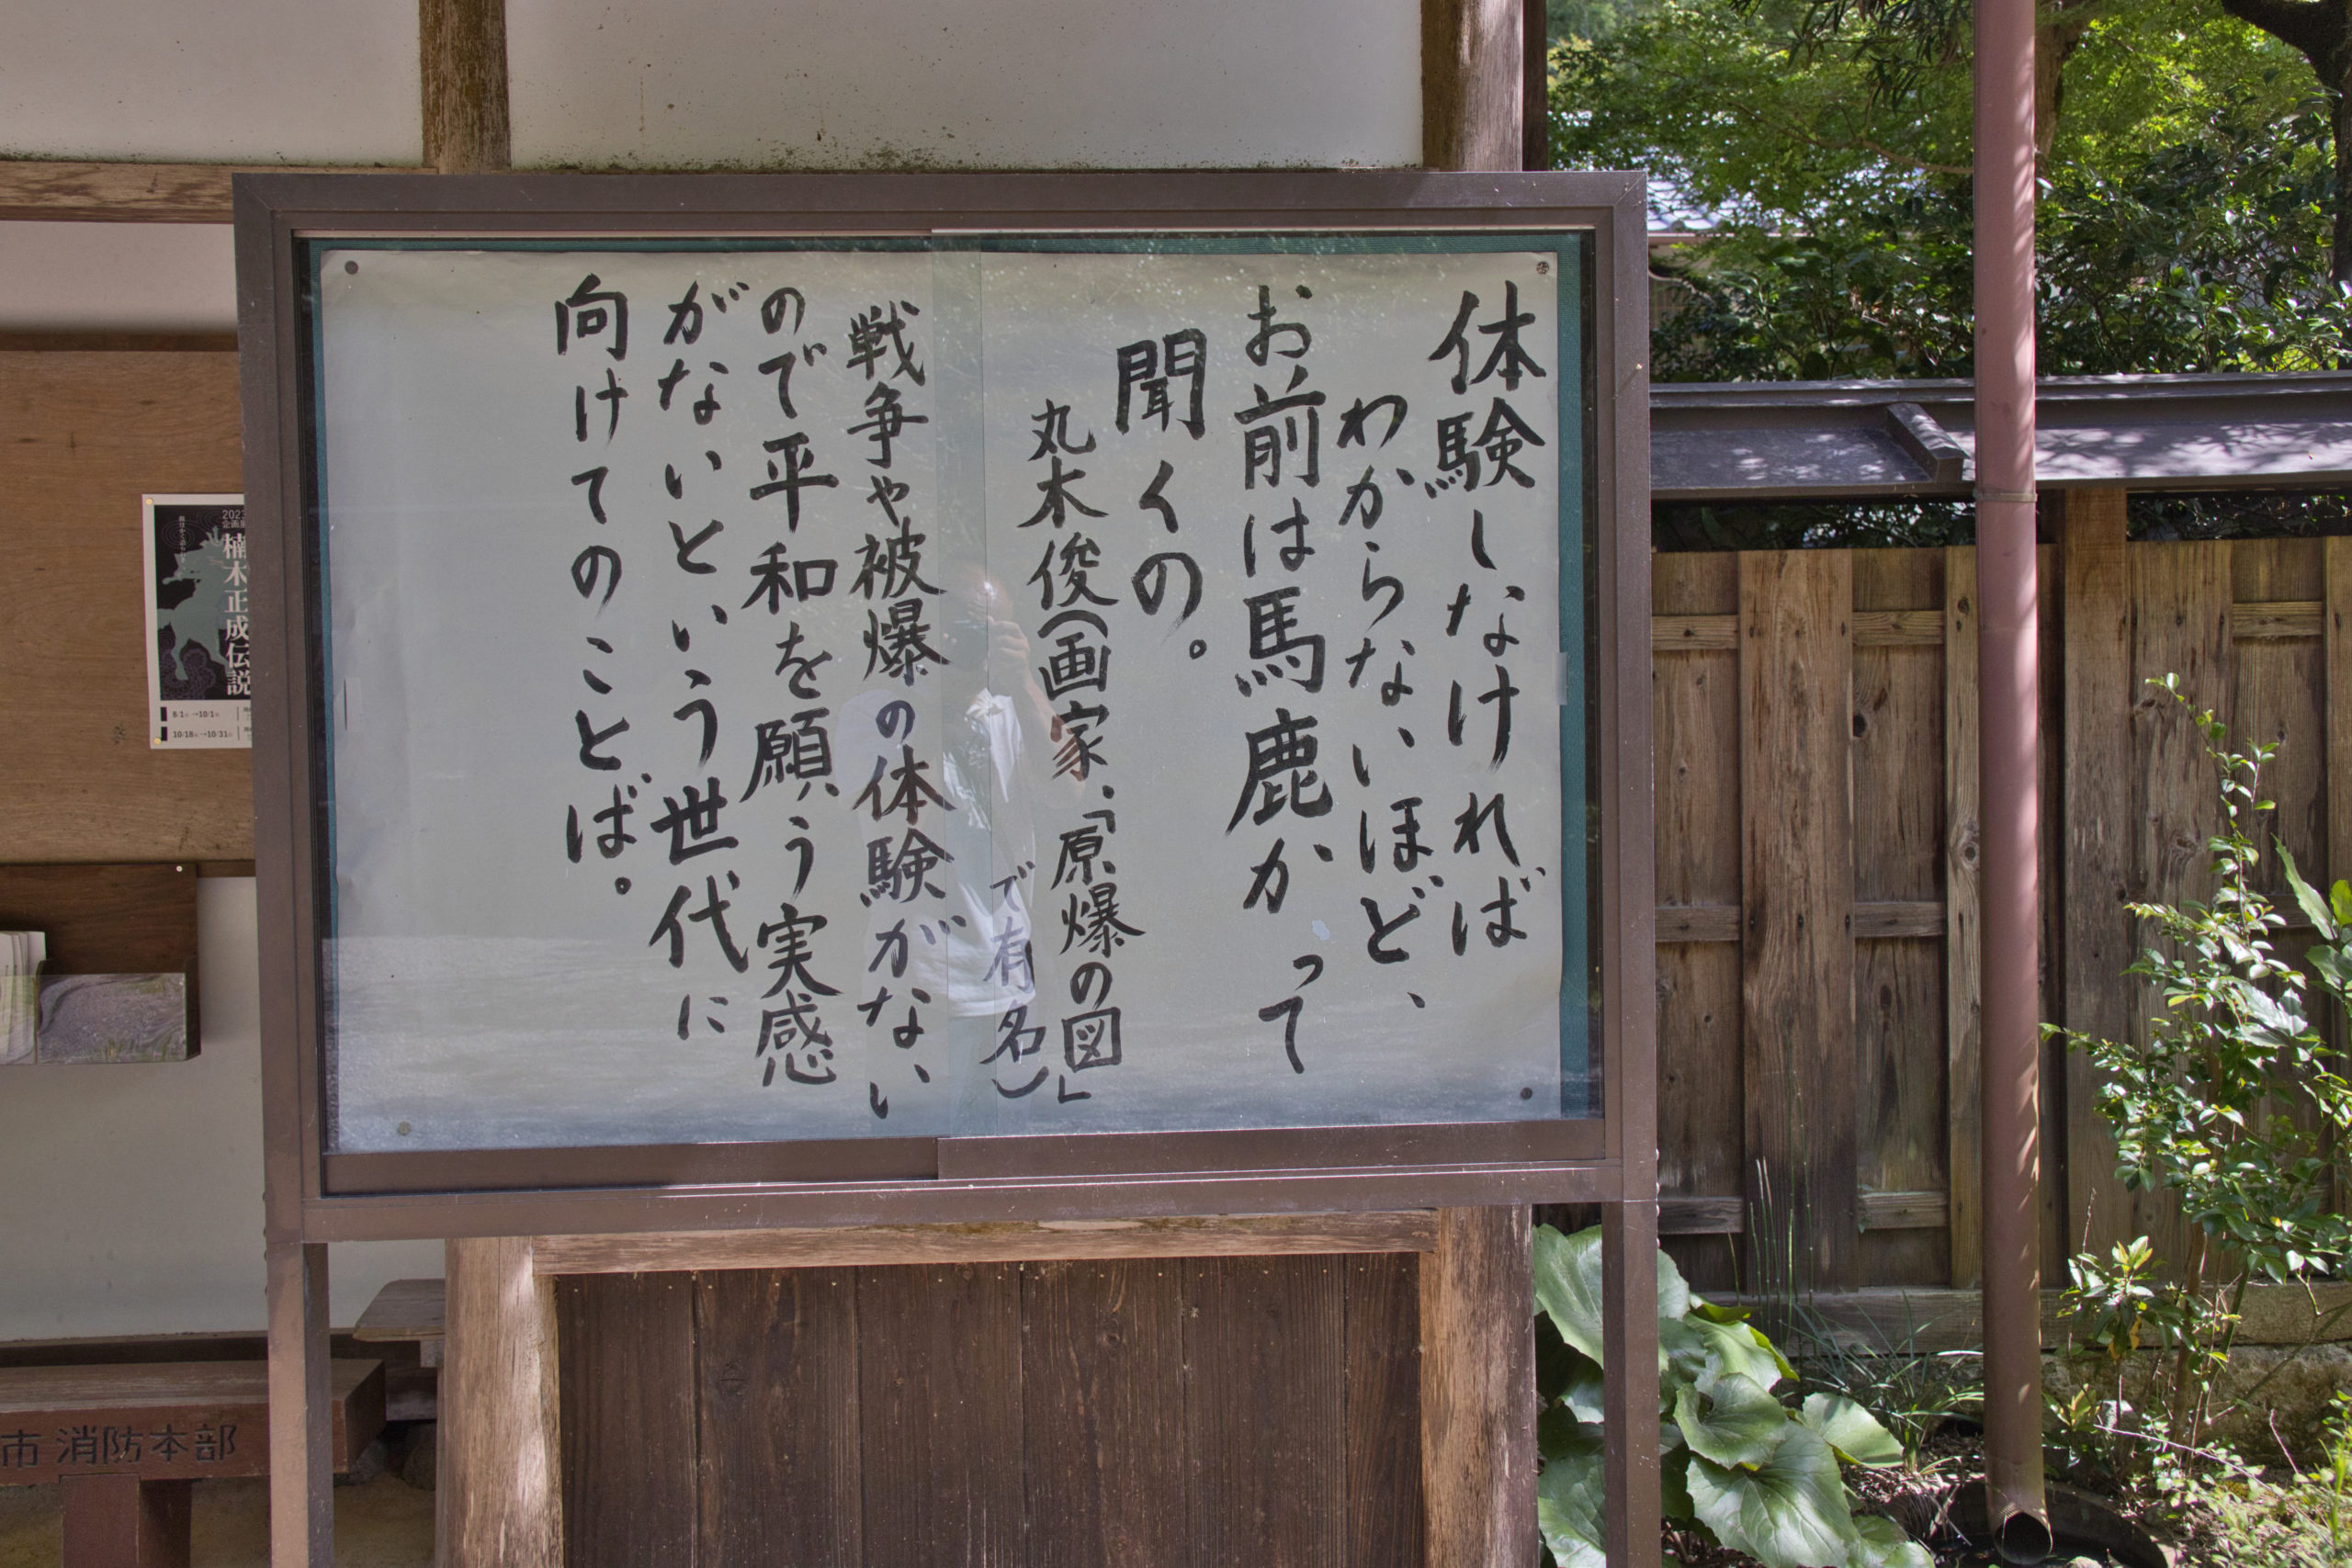 体験しなければ
わからないほど、
お前は馬鹿かって
聞くの。
丸木俊（画家、「原爆の図」
で有名）
戦争や被爆の体験がない
ので平和を願う実感
がないという世代に
向けてのことば。
2023
企画展
楠木正成伝説
8/1 →10/1
10/18 →10/31
市消防本部